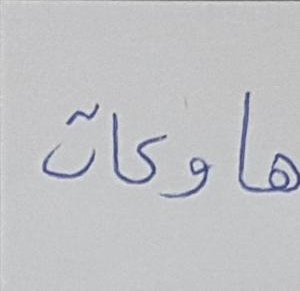 هاوكات